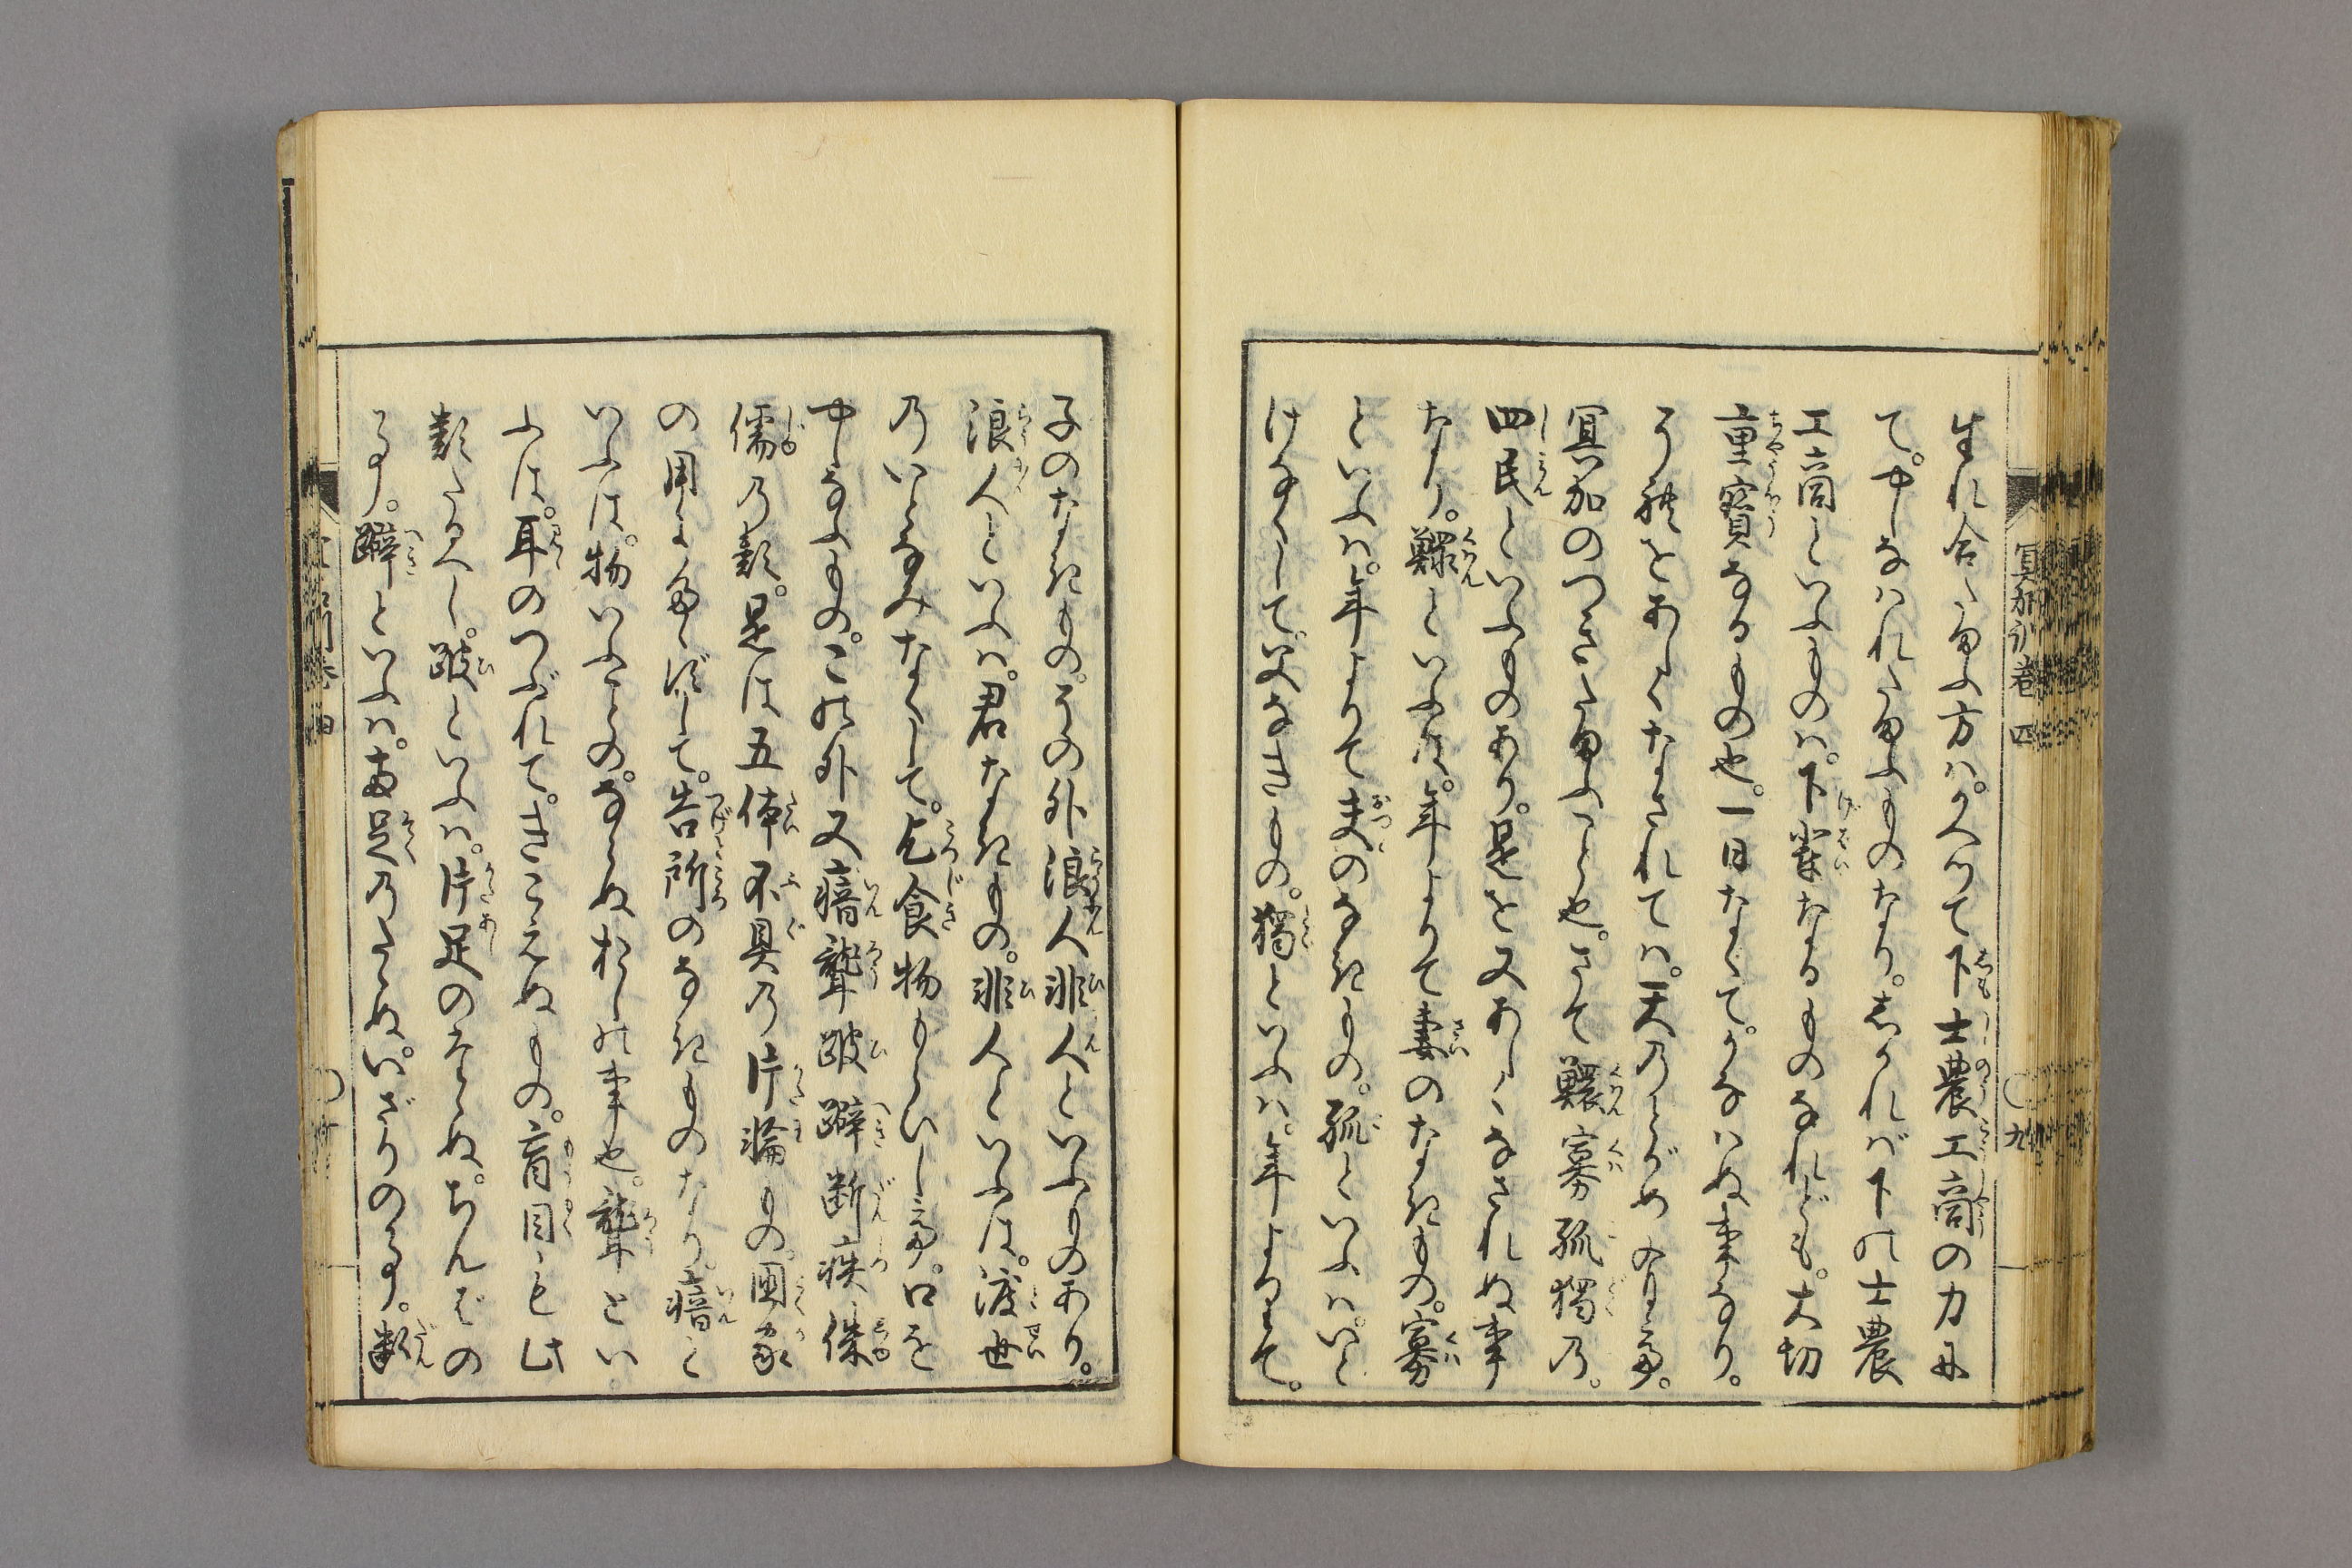 生れ合たまふ方ハ。かへつて下士農工商の力に
て。やしなハれたまふものなり。しかれバ下の士農
工商といふものハ。下輩なるものなれども。大切
重寳なるもの也。一日なくて。かなハぬ事なり。
そう繞をあしくなされてハ。天のとがめのりて。
冥加のつきたまふこと也。さて鰥寡孤獨の。
四民といふものあり。是を又あしくなされぬ事
なり。鰥といふは。年よりて妻のなきもの。寡
といふハ。年よりて夫のなきもの。孤といふハ。いと
けなくして。父なきもの。獨といふハ。年よりて。
子のなきもの。その外浪人非人といふものあり。
浪人といふハ。君なきもの。非人といふは。渡世
のいとなみなくして。乞食物もらいして。口を
やしなふもの。この外又瘖聾跛躃断疾侏
儒の類。是は五体不具の片輪もの。國家
の用にたゝずして。告所のなきものなり。瘖と
いふは。物いふことの。ならぬおしの事也。聾とい
ふは。耳のつぶれて。きこえぬもの。盲目も此
類たるへし。跛といふハ。片足のならぬ。ちんばの
こと。躃といふハ。両足のたゝぬ。いざりのこと。断
冥加訓巻四
九